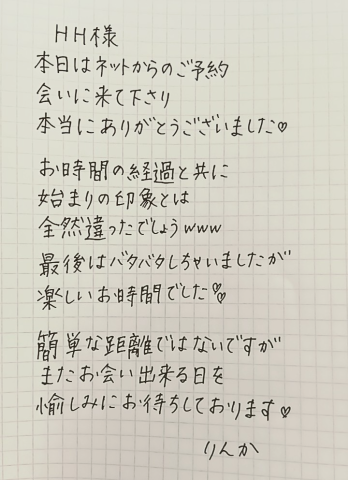 HH様
本日はネットからのご予約
会いに来て下さり
本当にありがとうございました♡
お時間の経過と共に
始まりの印象とは
全然違ったでしょうwww
最後はバタバタしちゃいましたが
楽しいお時間でした♡♡
簡単な距離ではないですが
またお会い出来る日を
愉しみにお待ちしております♡
りんか